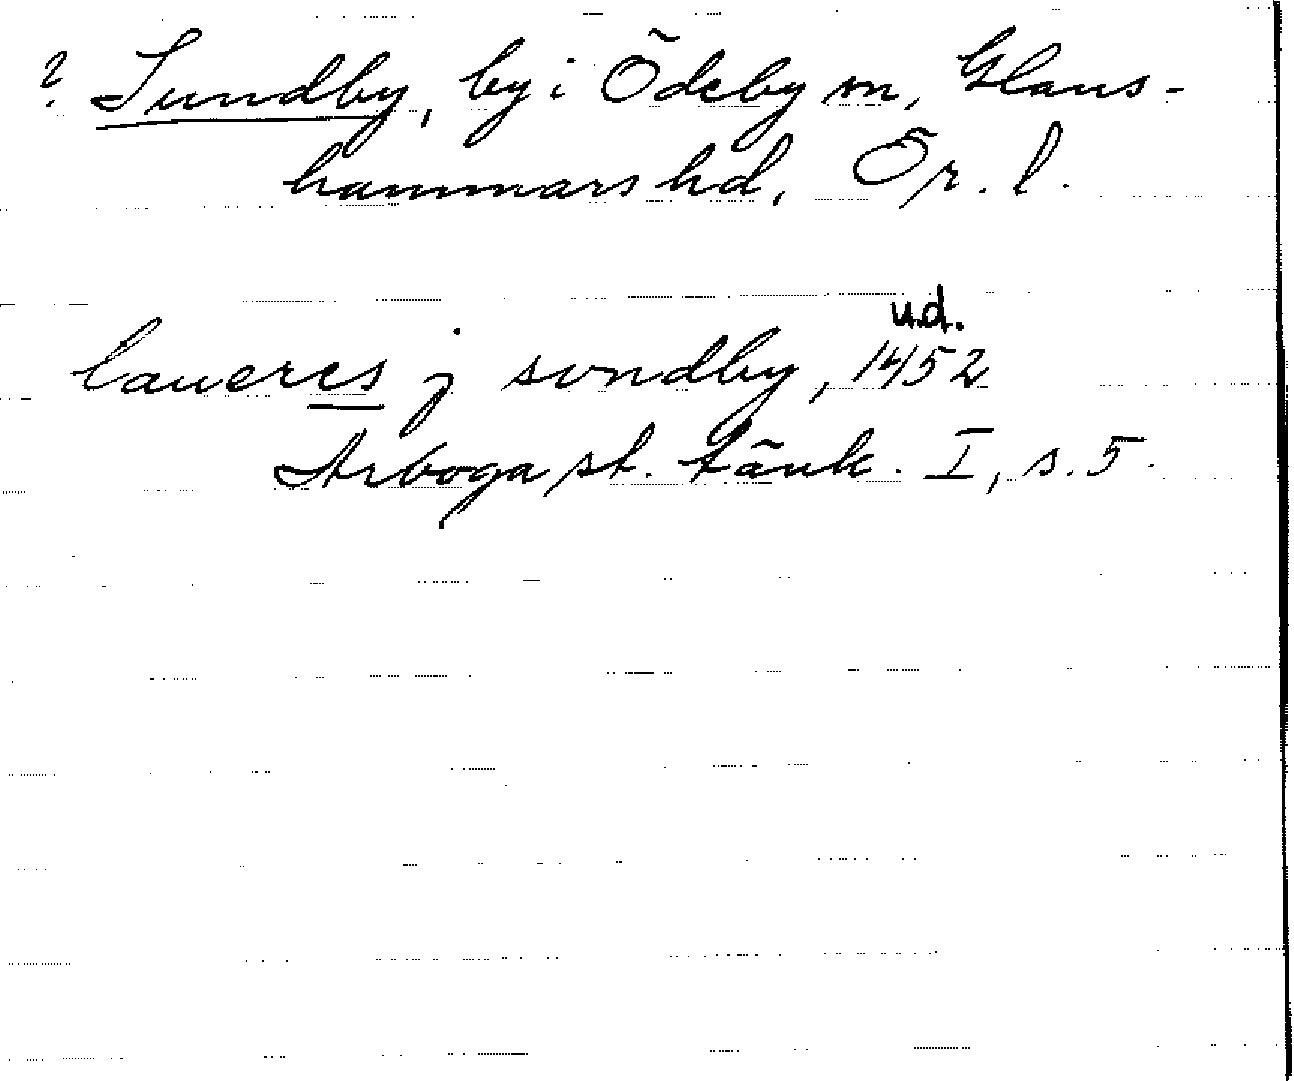 ? Sundby, by i Ödeby sn, Glans-
hammars hd, Ör. l.
u.d.
laueres j sundby, 1452
Arboga st. tänk. I, s. 5.